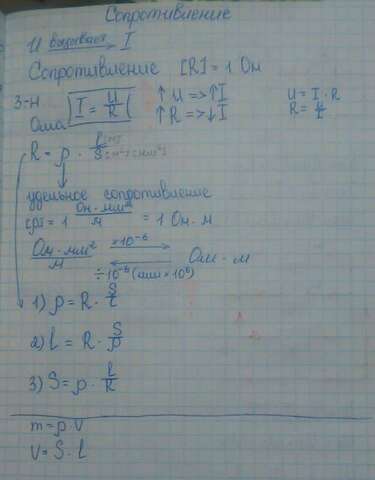 Сопротивление
U вызывает → I
Сопротивление [R] = 1 Ом
З-н Ома I = U/R ↑U => ↑I U = I · R
↑R => ↓I R = U/I
R = ρ · l/S
удельное сопротивление
[ρ] = 1 Ом · мм²/м = 1 Ом · м
Ом · мм²/м ×10⁻⁶ → Ом · м
← ÷10⁻⁶ (или ×10⁶)
1) ρ = R · S/l
2) l = R · S/ρ
3) S = ρ · l/R
m = ρ V
V = S · L